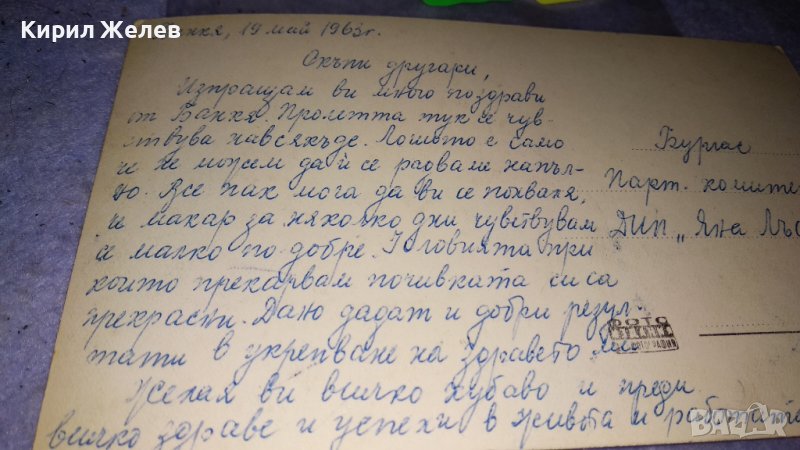 Кирил Желев
19 май 1963г.
Скъпи другари,
Изпращам ви много поздрави
от Банкя. Пролетта тук се чув-
ствува навсякъде. Лошото е само
че не можем да ѝ се радваме напъл-
но. Все пак мога да ви се похваля,
и макар за няколко дни чувствувам
се малко по добре. Условията при
които прекарвам почивката си са
прекрасни. Дано дадат и добри резул-
тати в укрепване на здравето
Желая ви всичко хубаво и преди
всичко здраве и успехи в живота и работата
Бургас
Парт. комите
ДИП „Яна Лъс
bazar.bg